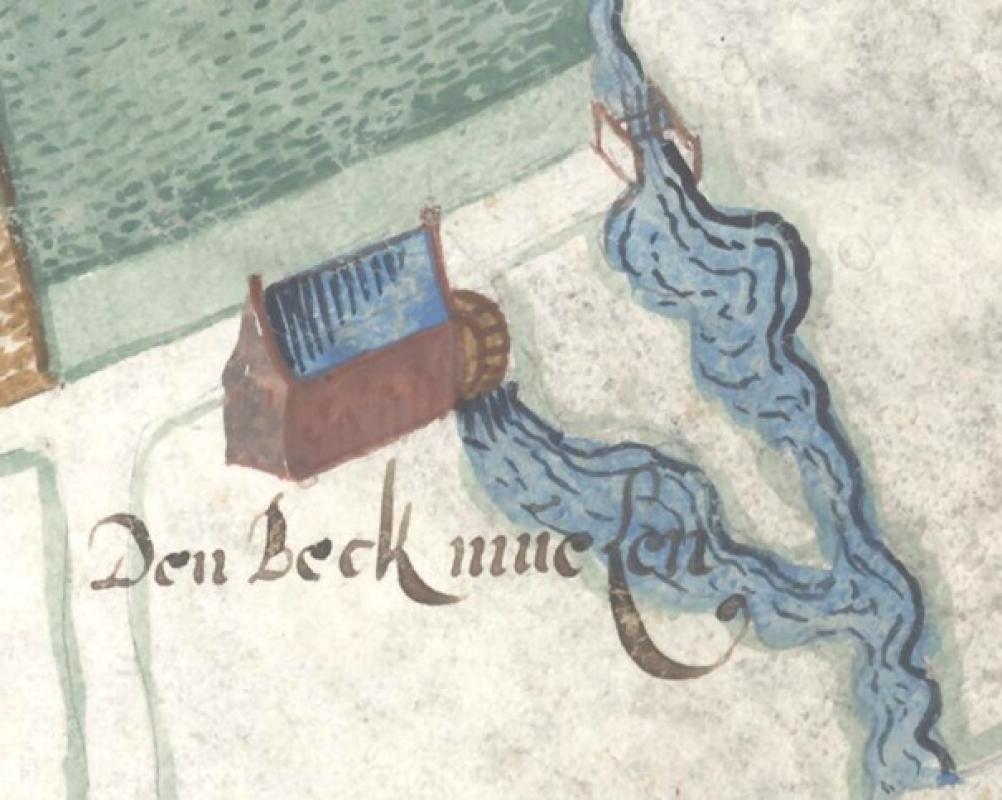 Den Beck muelen